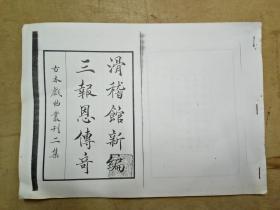 滑稽館新編
三報恩傳奇
古本戲曲叢刊二集